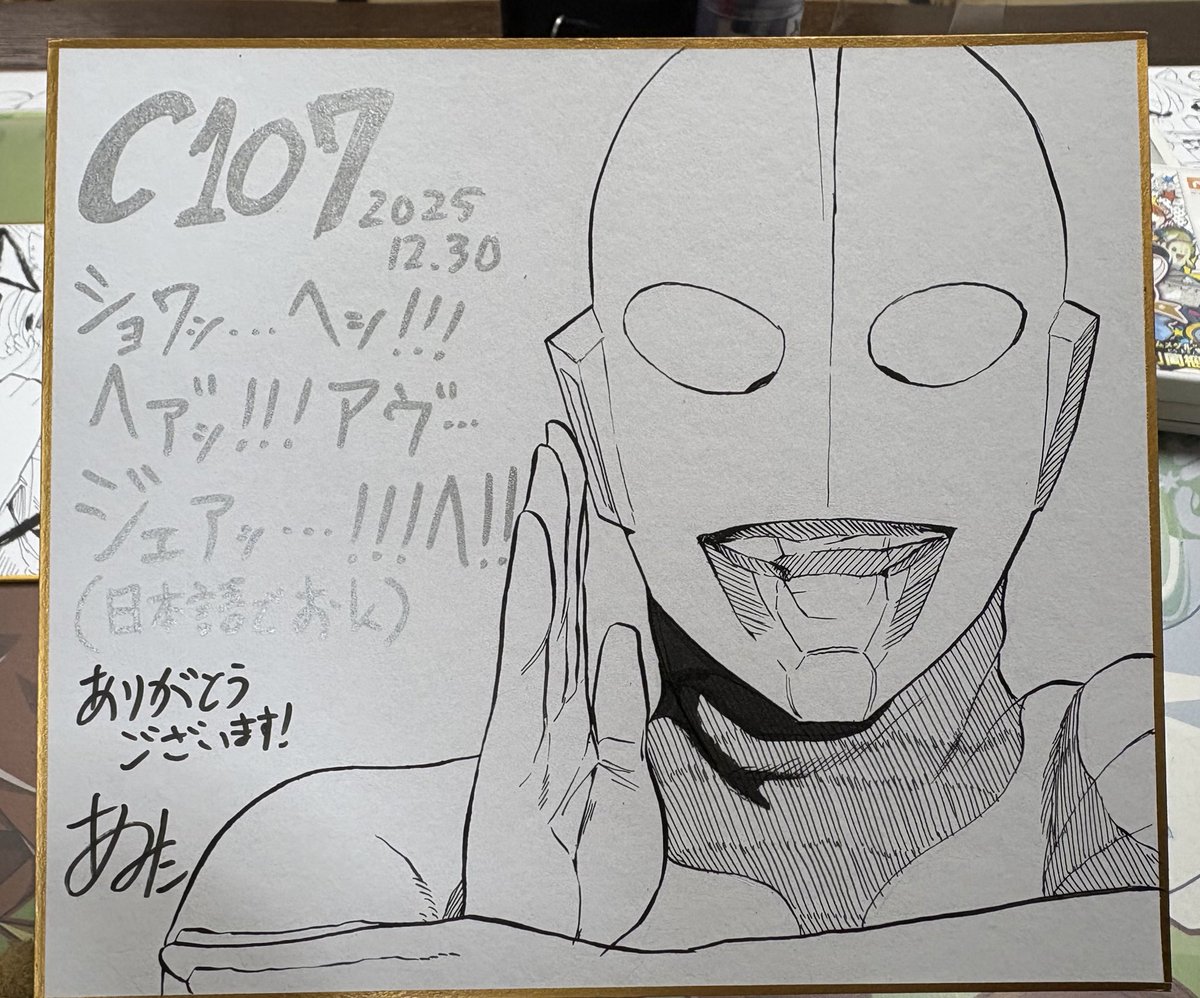 C107
2025
12.30
ショワッ…ヘッ!!!
ヘアッ!!!アヴ…
ジェアッ…!!!ヘ!!
(日本語でおk)
ありがとう
ございます!
あめた